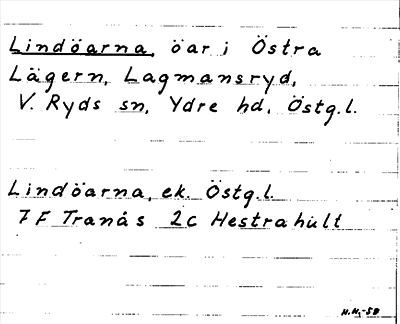 Lindöarna, öar i Östra
Lägern, Lagmansryd,
V. Ryds sn, Ydre hd, Östg.l.
Lindöarna, ek. Östg.l.
7F Tranås 2c Hestrahult
H.H.-58